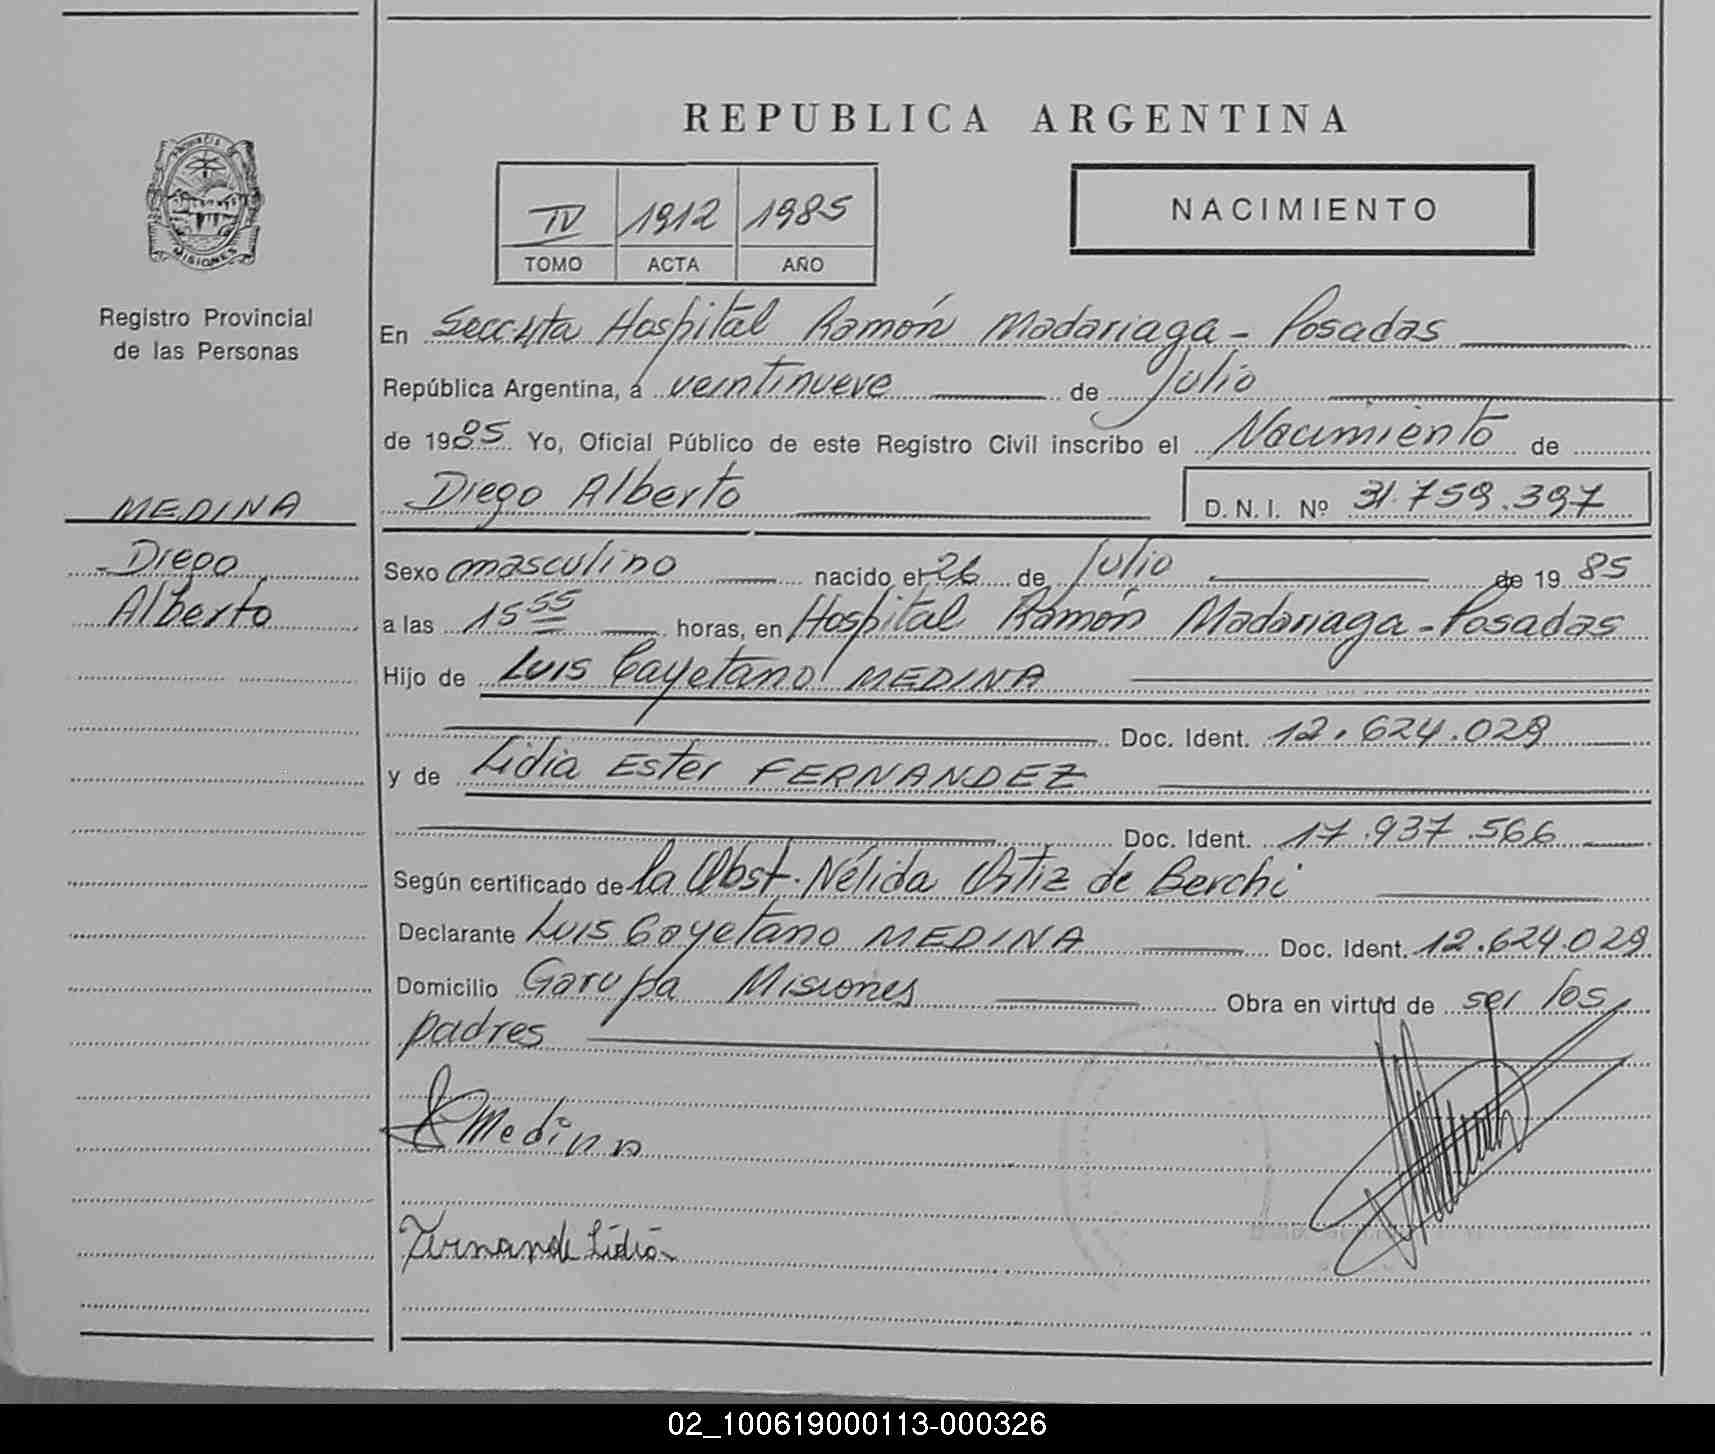 REPUBLICA ARGENTINA
PROVINCIA DE
MISIONES
IV 1912 1985
TOMO ACTA AÑO
NACIMIENTO
Registro Provincial
de las Personas
En Secc 4ta Hospital Ramón Madariaga - Posadas
República Argentina, a veintinueve de Julio
de 1985 Yo, Oficial Público de este Registro Civil inscribo el Nacimiento de
Diego Alberto D.N.I. Nº 31.759.397
MEDINA
Diego
Alberto
Sexo masculino nacido el 26 de Julio de 1985
a las 15 55 horas, en Hospital Ramón Madariaga - Posadas
Hijo de Luis Cayetano MEDINA
Doc. Ident. 12.624.029
y de Lidia Ester FERNANDEZ
Doc. Ident. 17.937.566
Según certificado de la Obst. Nélida Ortiz de Berchi
Declarante Luis Cayetano MEDINA Doc. Ident. 12.624.029
Domicilio Garupa Misiones Obra en virtud de ser los
padres
Medina
Fernande Lidia
02_100619000113-000326